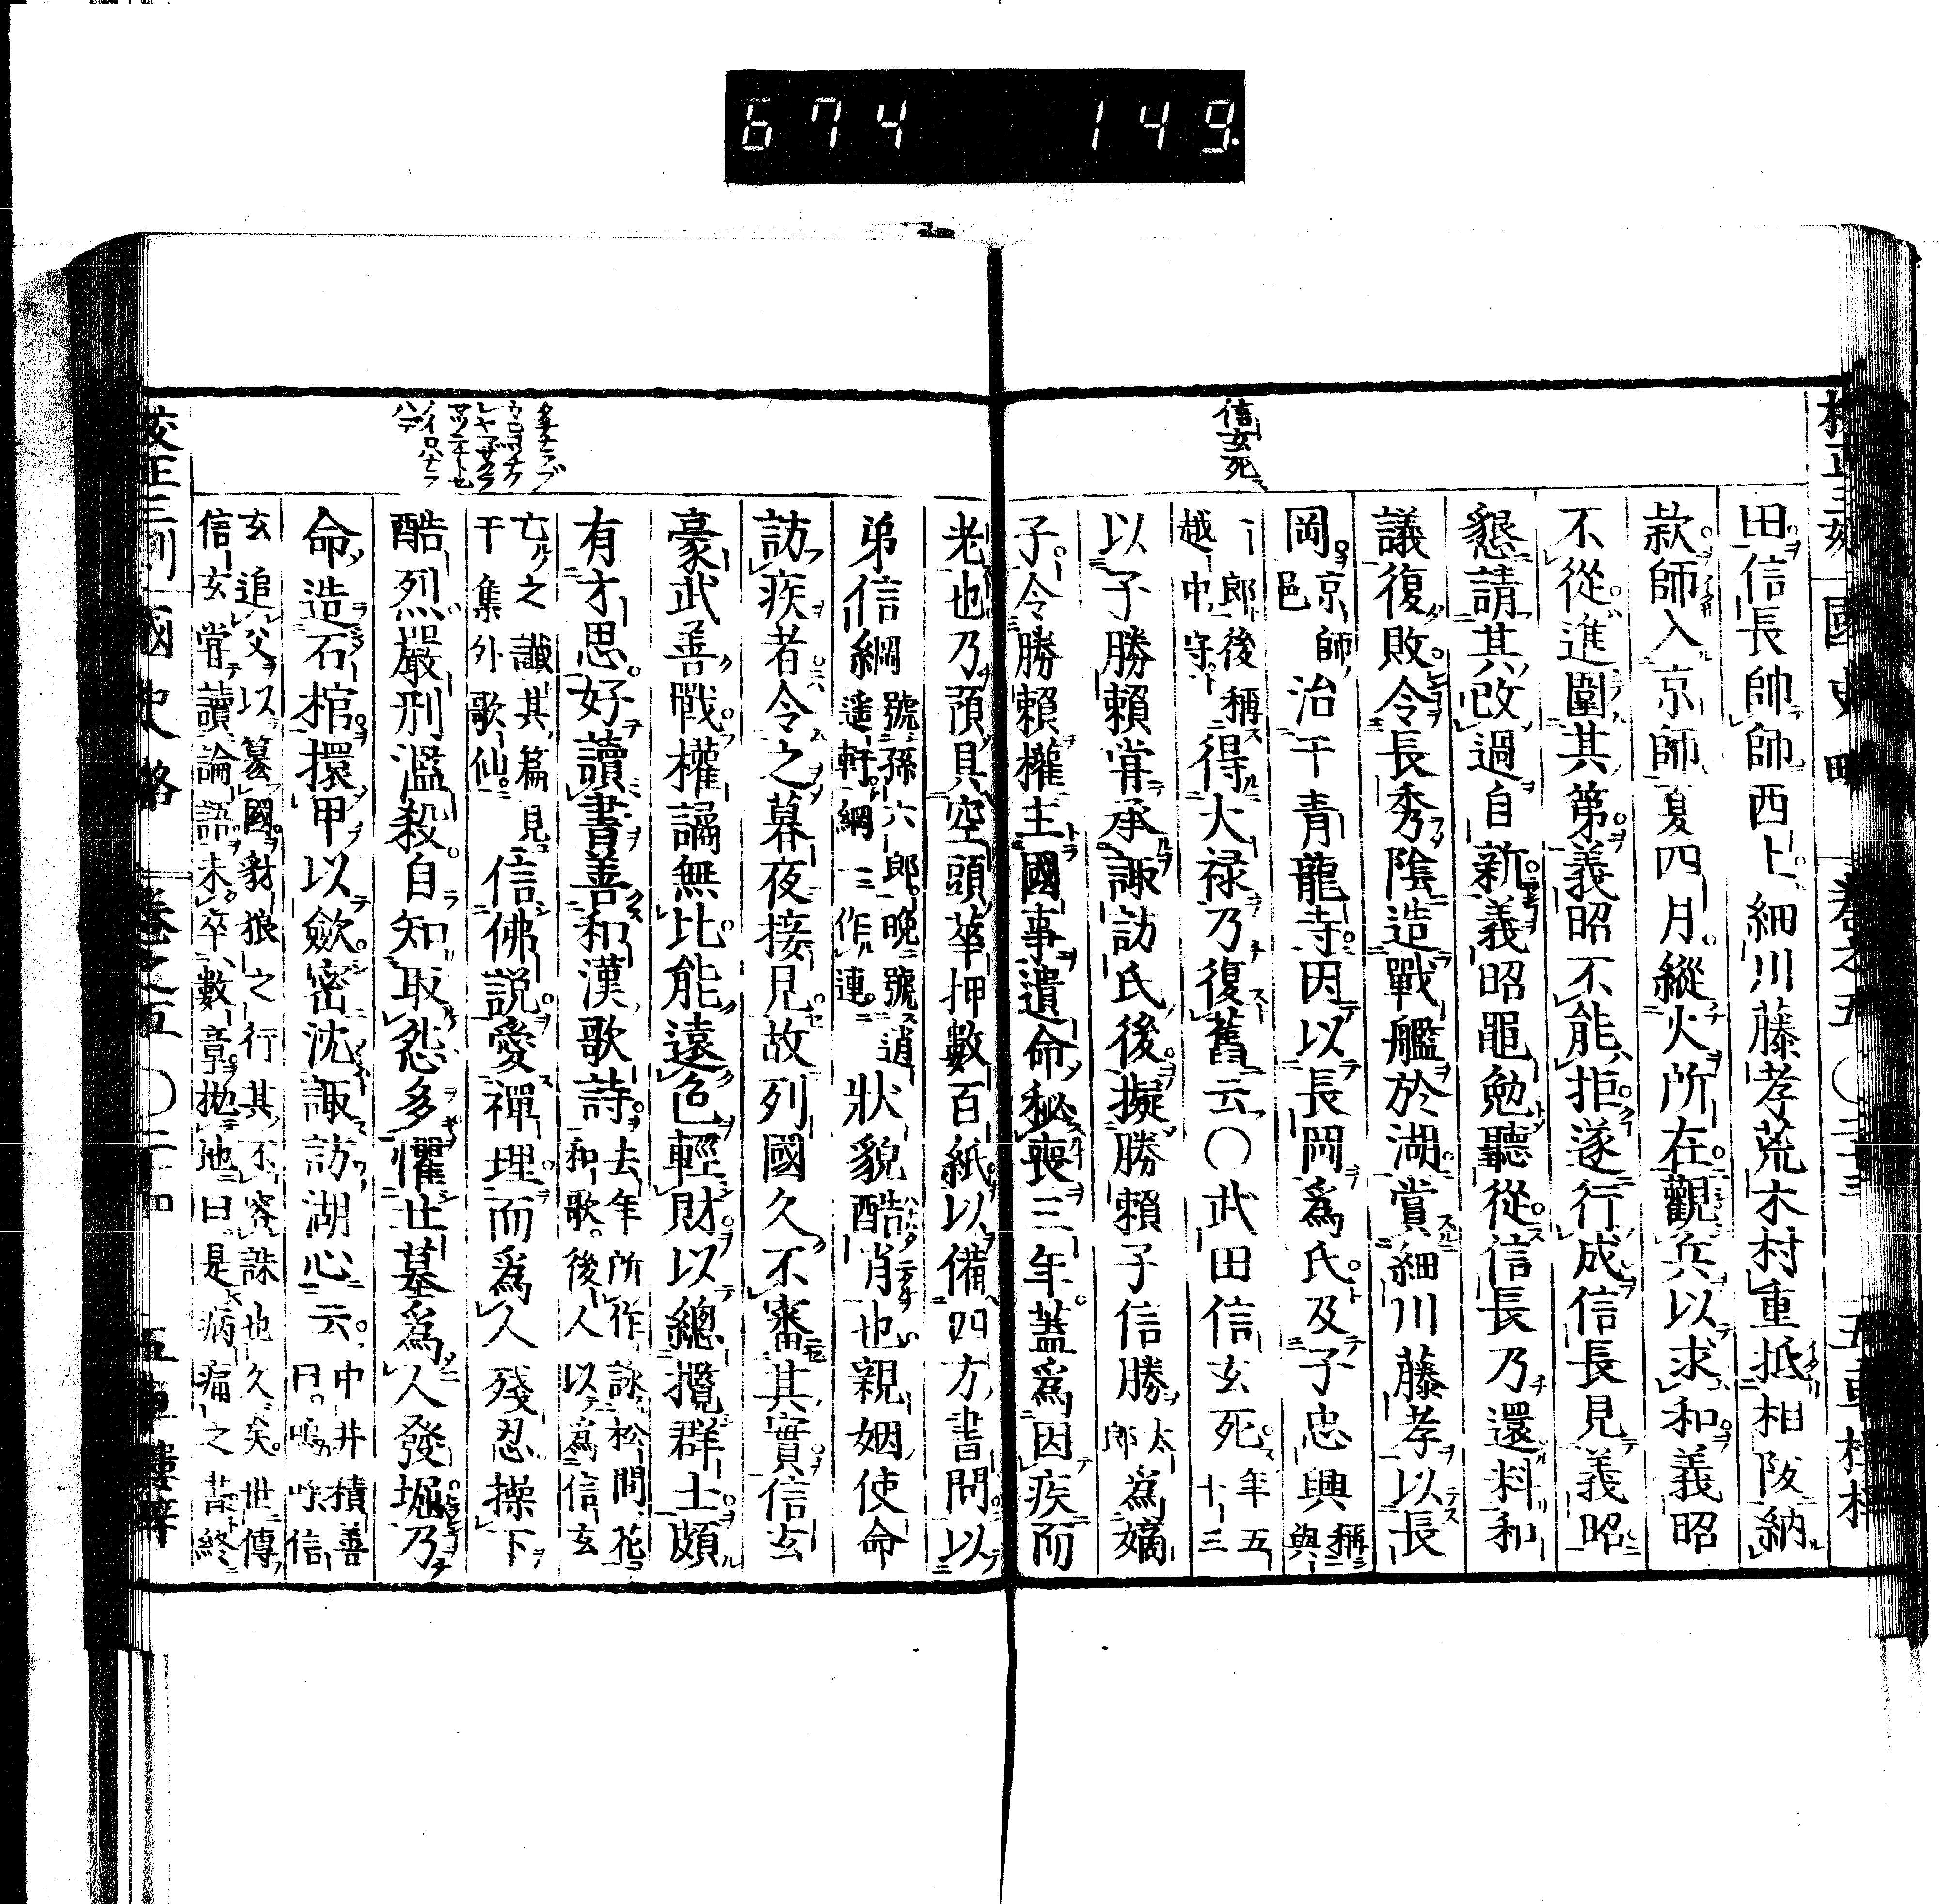 674 149
信玄死
田信長帥師西上細川藤孝荒木村重抵相阪納
款師入京師夏四月縱火所在觀兵以求和義昭
不從進圍其第義昭不能拒遂行成信長見義昭
懇請其改過自新義昭黽勉聽從信長乃還料和
議復敗令長秀陰造戰艦於湖賞細川藤孝以長
岡京師邑治于青龍寺因以長岡爲氏及子忠興稱與
一郎後稱越中守得大禄乃復舊云〇武田信玄死年五十三
以子勝賴嘗承諏訪氏後擬勝賴子信勝太郎爲嫡
子令勝賴權主國事遺命秘喪三年蓋爲因疾而
老也乃預具空頭華押數百紙以備四方書問以
弟信綱號孫六郎晩號逍遥軒綱三作連狀貌酷肖也親姻使命
訪疾者令之暮夜接見故列國久不審其實信玄
豪武善戰權譎無比能遠色輕財以總攬群士頗
有才思好讀書善和漢歌詩去年所作詠松間花和歌後人以爲信玄
亡之讖其篇見于集外歌仙信佛説愛禪理而爲人殘忍操下
酷烈嚴刑濫殺自知取怨多懼世墓爲人發堀乃
命造石棺擐甲以歛密沈諏訪湖心云中井積善曰嗚呼信
玄追父以簒國豺狼之行其不容誅也久矣世傳
信玄嘗讀論語未卒數章抛地曰是病痛之書終
國史略
卷之五
五車樓